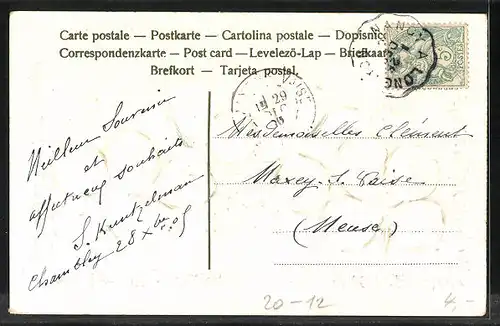 Carte postale — Postkarte — Cartolina postale — Dopisnice
Correspondenzkarte — Post card — Levelező-Lap — Briefkaart
Brefkort — Tarjeta postal.
29
Meilleur Souvenir
et
affectueux souhaits
S. Kuntzelman
Chambley 28 Xbre 05
Mesdemoiselles Clément
Maxey-s. Vaise
(Meuse)
20-12
4,-